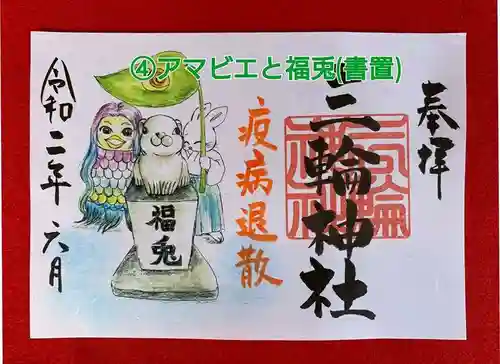 ④アマビエと福兎(書置)
奉拝
三輪神社
疫病退散
福兎
令和二年 六月